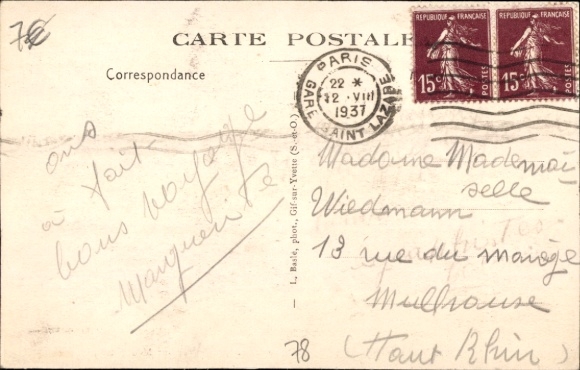 78
CARTE POSTALE
Correspondance
REPUBLIQUE FRANÇAISE
15c
POSTES
REPUBLIQUE FRANÇAISE
15c
POSTES
PARIS
22 *
12 · VIII
1937
GARE SAINT LAZARE
ons
a fait
bons voyage
Marguerite
L. Basle, phot., Gif-sur-Yvette (S.-et-O.)
Madame Mademoi
selle
Wiedmann
13 rue du manège
Mulhouse
(Haut Rhin)
78